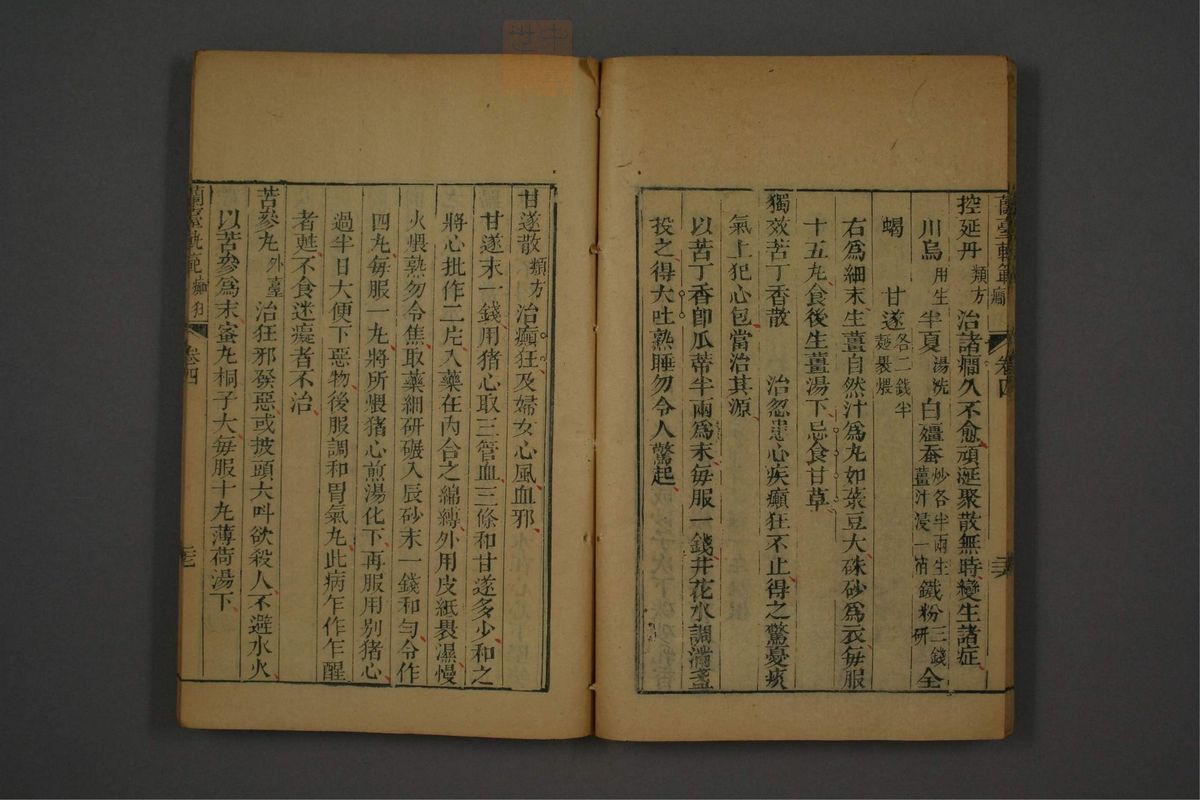 蘭臺軌範 癲
卷四
控延丹類方 治諸癎久不愈頑涎聚散無時變生諸症
川烏用生半夏湯洗白殭蚕炒各半兩生薑汁浸一宿鐵粉三錢研全
蝎 甘遂各二錢半麵裹煨
右爲細末生薑自然汁爲丸如菉豆大硃砂爲衣每服
十五丸食後生薑湯下忌食甘草
獨效苦丁香散 治忽患心疾癲狂不止得之驚憂痰
氣上犯心包當治其源
以苦丁香卽瓜蒂半兩爲末每服一錢井花水調滿盞
投之得大吐熟睡勿令人驚起
甘遂散類方 治癲狂及婦女心風血邪
甘遂末一錢用猪心取三管血三條和甘遂多少和之
將心批作二片入藥在內合之綿縛外用皮紙裹濕慢
火煨熟勿令焦取藥細研碾入辰砂末一錢和勻令作
四丸每服一丸將所煨猪心煎湯化下再服用別猪心
過半日大便下惡物後服調和胃氣丸此病乍作乍醒
者甦不食迷癡者不治
苦參丸外臺 治狂邪發惡或披頭大叫欲殺人不避水火
以苦參爲末蜜丸桐子大每服十丸薄荷湯下
蘭臺軌範 癲狂
卷四